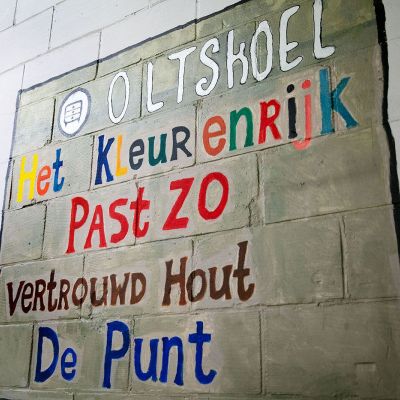 OLTSKOEL
Het KLEURENRIJK
PAST ZO
VERTROUWD HOUT
De Punt